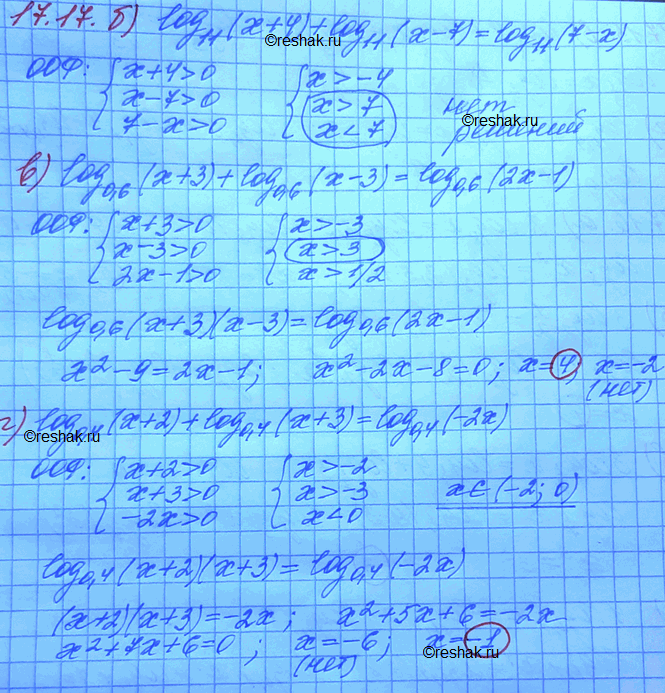 17.17. б) log₁₁(x+4)+log₁₁(x-7)=log₁₁(7-x)
©reshak.ru
ООФ: { x+4>0 { x>-4
x-7>0 x>7 нет
7-x>0 x<7 решений
©reshak.ru
в) log₀,₆(x+3)+log₀,₆(x-3)=log₀,₆(2x-1)
ООФ: { x+3>0 { x>-3
x-3>0 x>3
2x-1>0 x>1/2
log₀,₆(x+3)(x-3)=log₀,₆(2x-1)
x²-9=2x-1; x²-2x-8=0; x=4, x=-2
(нет)
г) log₀,₄(x+2)+log₀,₄(x+3)=log₀,₄(-2x)
©reshak.ru
ООФ: { x+2>0 { x>-2
x+3>0 x>-3 x∈(-2; 0)
-2x>0 x<0
log₀,₄(x+2)(x+3)=log₀,₄(-2x)
(x+2)(x+3)=-2x; x²+5x+6=-2x
x²+7x+6=0; x=-6; x=-1
(нет)
©reshak.ru